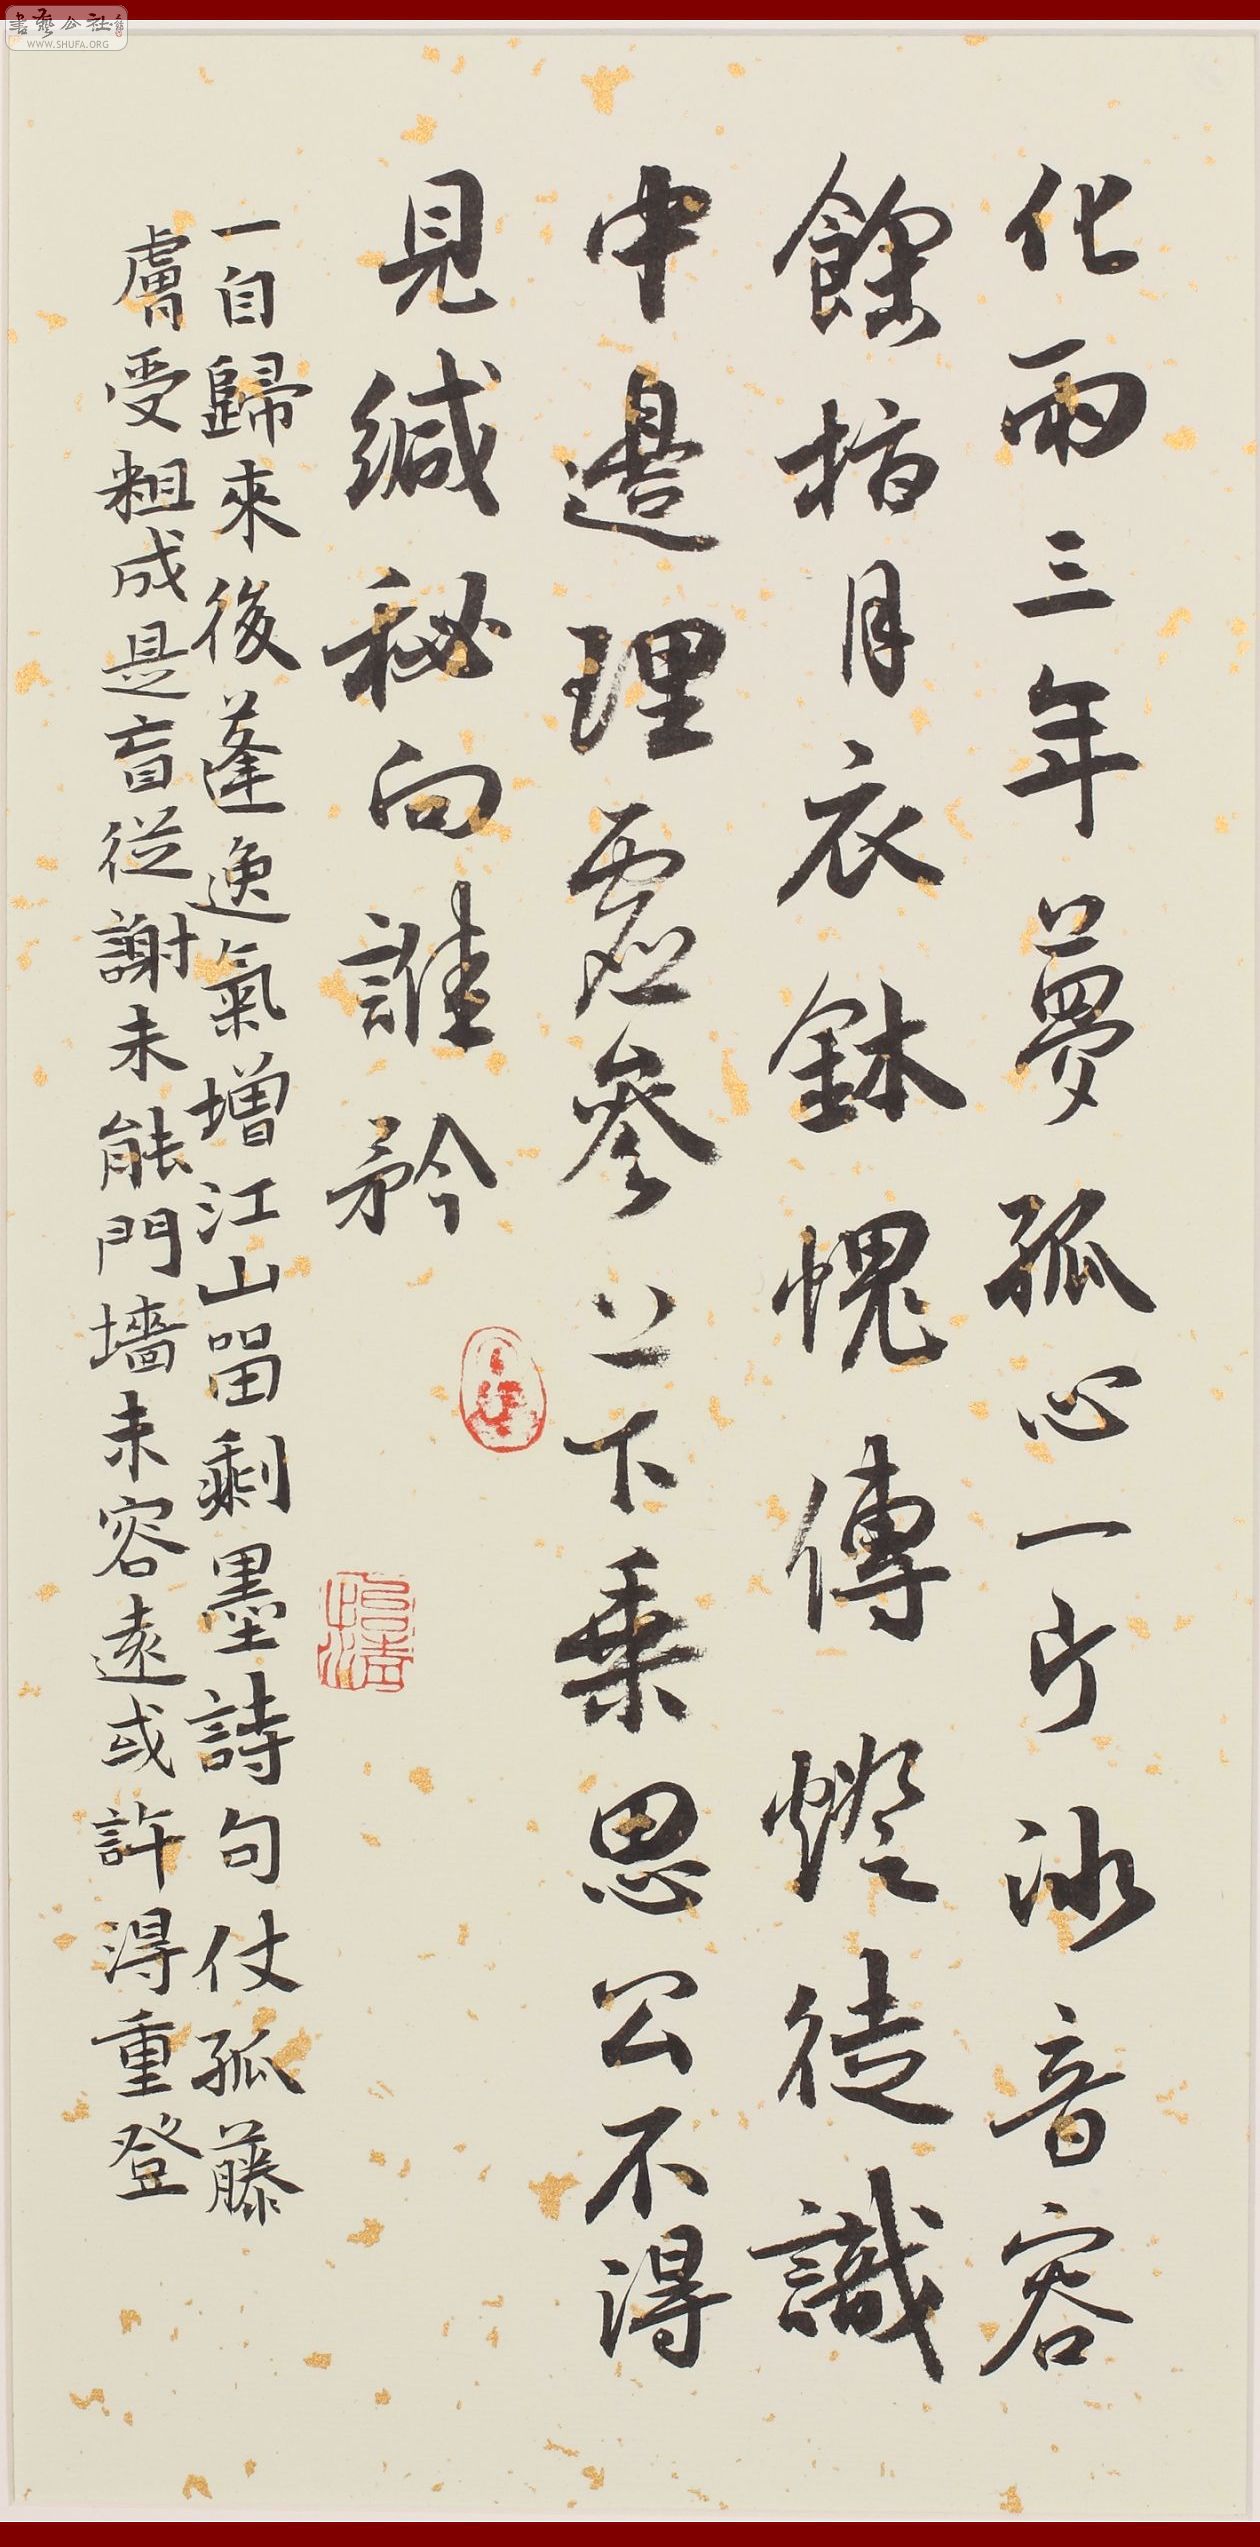 書藝公社
WWW.SHUFA.ORG
化雨三年夢孤心一片冰音容
餘指月衣鉢愧傳燈徒識
中邊理虛參上下乗思公不得
見緘秘向誰矜
一自歸來後蓬逸氣增江山留剩墨詩句仗孤藤
膚受粗成是盲從謝未能門墻未容遠或許得重登